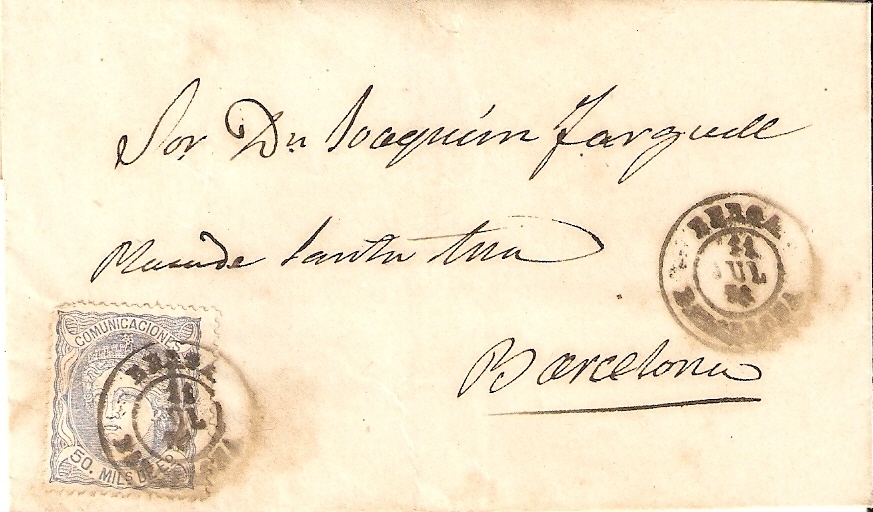 Sor Dn Joaquim Farguell
Plasa de Santa Ana
Barcelona
BERGA
11
JUL
BARCELONA
COMUNICACIONES
50. MILS DE E
BERGA
11